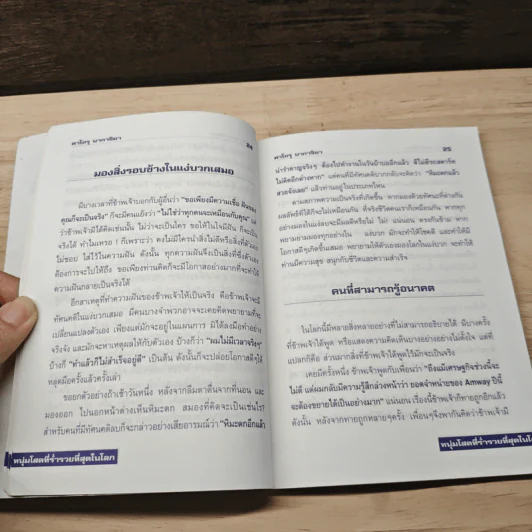 คาโอรุ นากาจิมา 24
มองสิ่งรอบข้างในแง่บวกเสมอ
มีบางเวลาที่ข้าพเจ้าบอกกับผู้อื่นว่า "ขอเพียงมีความเชื่อ ฝันของ
คุณก็จะเป็นจริง" ก็จะมีคนแย้งว่า "ไม่ใช่ว่าทุกคนจะเหมือนกับคุณ" แต่
ว่าข้าพเจ้ามิได้คิดเช่นนั้น ไม่ว่าจะเป็นใคร ขอให้ในใจมีฝัน ก็จะเป็น
จริงได้ ทำไมเหรอ ! ก็เพราะว่า คงไม่มีใครนำสิ่งไม่ดีหรือสิ่งที่ตัวเอง
ไม่ชอบ ใส่ไว้ในความฝัน ดังนั้น ทุกความฝันจึงเป็นสิ่งที่ซึ่งตัวเอง
ต้องการจะไปให้ถึง ขอเพียงท่านคิดก็จะมีโอกาสอย่างมากที่จะทำให้
ความฝันกลายเป็นจริงได้
อีกสาเหตุที่ทำความฝันของข้าพเจ้าให้เป็นจริง คือข้าพเจ้าจะมี
ทัศนคติในแง่บวกเสมอ มีคนบางจำพวกอาจจะเคยคิดพยายามที่จะ
เปลี่ยนแปลงตัวเอง เพียงแต่มักจะอยู่ในแผนการ มิได้ลงมือทำอย่าง
จริงจัง และมักจะหาเหตุผลให้กับตัวเอง บ้างก็ว่า "ผมไม่มีเวลาจริงๆ"
บ้างก็ "ทำแล้วก็ไม่สำเร็จอยู่ดี" เป็นต้น ดังนั้นก็จะปล่อยโอกาสดีๆให้
หลุดมือครั้งแล้วครั้งเล่า
ขอยกตัวอย่างถ้าเช้าวันหนึ่ง หลังจากลืมตาตื่นจากที่นอน และ
มองออก ไปนอกหน้าต่างเห็นหิมะตก สมองที่คิดจะเป็นเช่นไร?
สำหรับคนที่มีทัศนคติลบก็จะกล่าวอย่างเสียอารมณ์ว่า "หิมะตกอีกแล้ว
หนุ่มโสดที่ร่ำรวยที่สุดในโลก
คาโอรุ นากาจิมา 25
น่ารำคาญจริงๆ ต้องไปทำงานในวันบ้าบออีกแล้ว ดีไม่ดีรถสตาร์ท
ไม่ติดอีกต่างหาก" แต่คนที่มีทัศนคติบวกกลับจะคิดว่า "หิมะตกแล้ว
สวยจังเลย" แล้วท่านอยู่ในประเภทไหน
ตามสภาพความเป็นจริงที่เกิดขึ้น หากมองด้วยทัศนะที่ต่างกัน
ผลลัพธ์ที่ได้ก็จะไม่เหมือนกัน ที่จริงชีวิตคนเราก็เหมือนกัน หากทุก
อย่างมองในแง่ลบจะมีผลดีหรือไม่ ไม่! แน่นอน ตรงกันข้าม หาก
พยายามมองทุกอย่างใน แง่บวก มักจะทำให้โชคดี และทำให้มี
โอกาสดีๆเกิดขึ้นเสมอ พยายามให้ตัวเองมองโลกในแง่บวก จะทำให้
ท่านมีความสุข สนุกกับชีวิตและความสำเร็จ
คนที่สามารถรู้อนาคต
ในโลกนี้มีหลายสิ่งหลายอย่างที่ไม่สามารถอธิบายได้ มีบางครั้ง
ที่ข้าพเจ้าได้พูด หรือแสดงความคิดเห็นบางอย่างอย่างไม่ตั้งใจ แต่ที่
แปลกก็คือ ส่วนมากสิ่งที่ข้าพเจ้าได้พูดไว้มักจะเป็นจริง
เคยมีครั้งหนึ่ง ข้าพเจ้าพูดกับเพื่อนว่า "ถึงแม้เศรษฐกิจช่วงนี้จะ
ไม่ดี แต่ผมกลับมีความรู้สึกล่วงหน้าว่า ยอดจำหน่ายของ Amway ปีนี้
จะต้องขยายได้เป็นอย่างมาก" แน่นอน เรื่องนี้ข้าพเจ้าก็ทายถูกอีกแล้ว
ดังนั้น หลังจากทายถูกหลายๆครั้ง เพื่อนๆจึงพากันคิดว่าข้าพเจ้ามี
หนุ่มโสดที่ร่ำรวยที่สุดในโลก